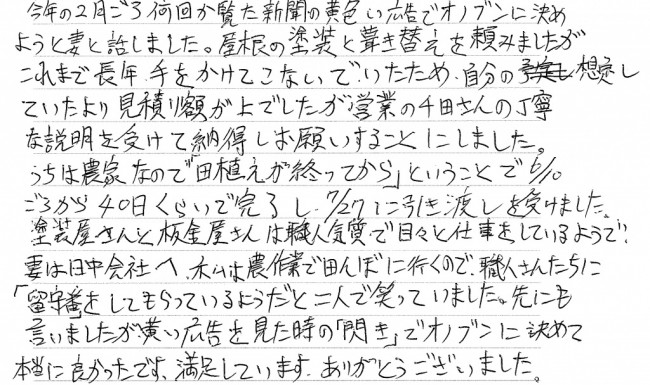 今年の2月ごろ何回か覧た新聞の黄色い広告でオノブンに決め
ようと妻と話しました。屋根の塗装と葺き替えを頼みましたが
これまで長年、手をかけてこないでいたため、自分の想定し
ていたより見積り額が上でしたが営業の千田さんの丁寧
な説明を受けて納得しお願いすることにしました。
うちは農家なので「田植えが終ってから」ということで6/10
ごろから40日くらいで完了し、7/27に引き渡しを受けました。
塗装屋さんと板金屋さんは職人気質で日々と仕事をしているようで、
妻は日中会社へ、私は農作業で田んぼに行くので、職人さんたちに
「留守番をしてもらっているようだと二人で笑っていました。先にも
言いましたが黄い広告を見た時の「閃き」でオノブンに決めて
本当に良かったです、満足しています。ありがとうございました。